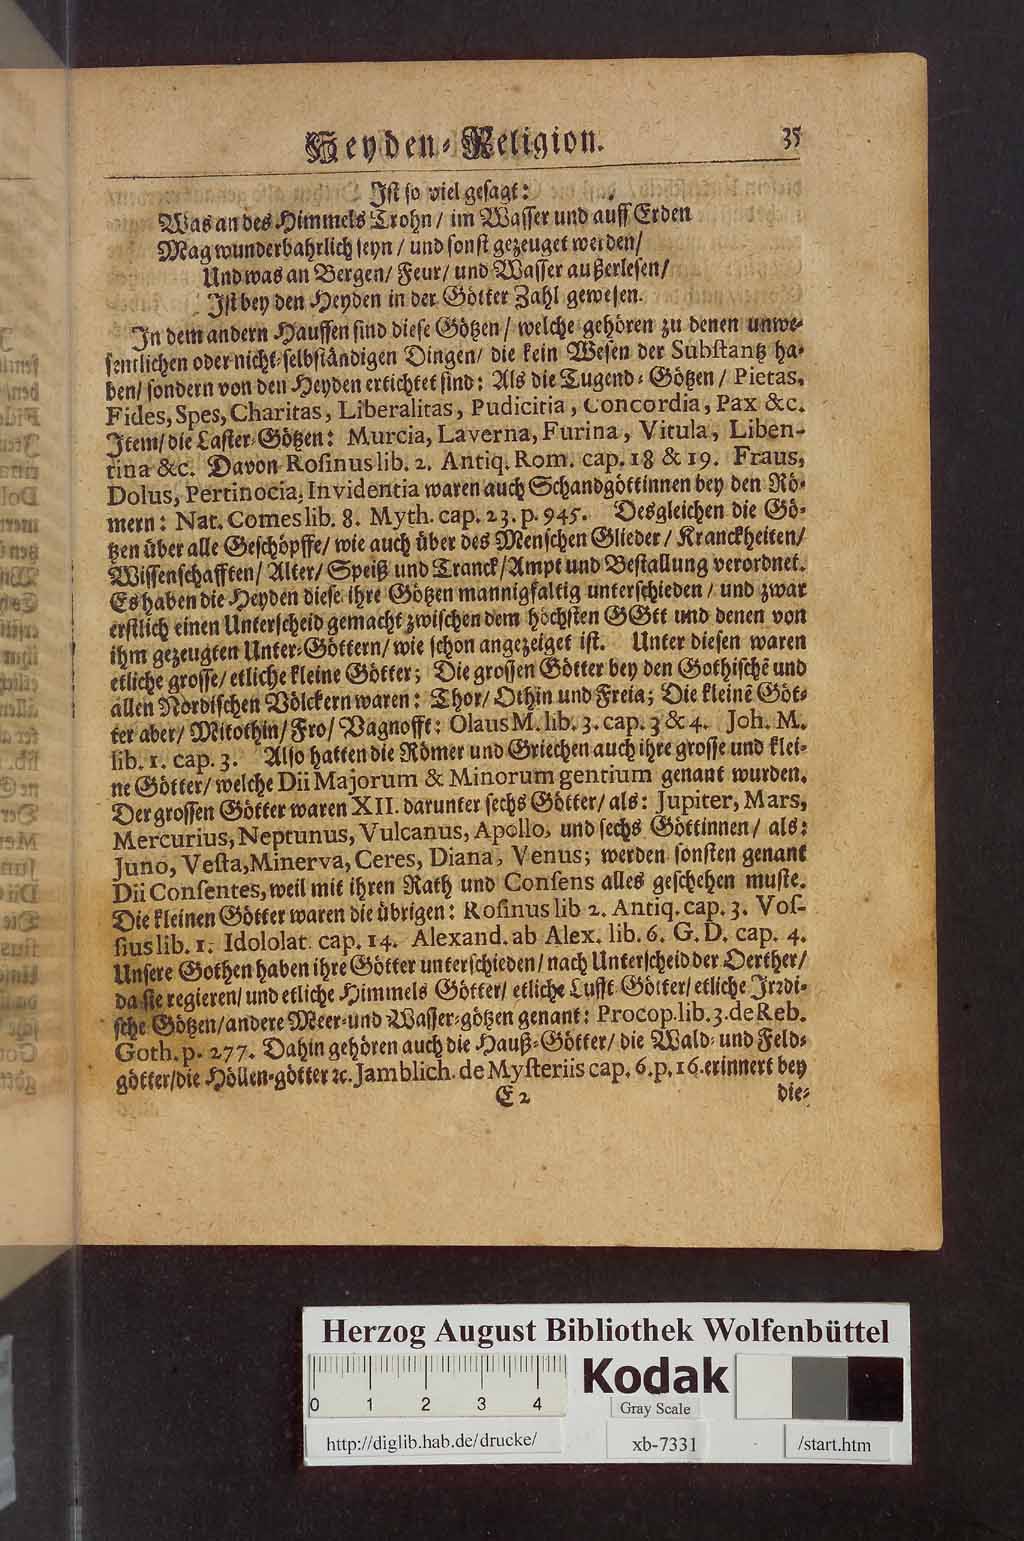 Heyden-Religion. 35
Ist so viel gesagt:
Was an des Himmels Trohn/ im Wasser und auff Erden
Mag wunderbahrlich seyn/ und sonst gezeuget werden/
Und was an Bergen/ Feur/ und Wasser außerlesen/
Ist bey den Heyden in der Götter Zahl gewesen.
In dem andern Hauffen sind diese Götzen/ welche gehören zu denen unwe-
sentlichen oder nicht-selbständigen Dingen/ die kein Wesen der Substantz ha-
ben/ sondern von den Heyden ertichtet sind: Als die Tugend-Götzen/ Pietas,
Fides, Spes, Charitas, Liberalitas, Pudicitia, Concordia, Pax &c.
Item/ die Laster-Götzen: Murcia, Laverna, Furina, Vitula, Liben-
tina &c. Davon Rosinus lib. 2. Antiq. Rom. cap. 18 & 19. Fraus,
Dolus, Pertinocia, Invidentia waren auch Schandgöttinnen bey den Rö-
mern: Nat. Comes lib. 8. Myth. cap. 23. p. 945. Desgleichen die Gö-
tzen über alle Geschöpffe/ wie auch über des Menschen Glieder/ Kranckheiten/
Wissenschafften/ Alter/ Speiß und Tranck/ Ampt und Bestallung verordnet.
Es haben die Heyden diese ihre Götzen mannigfaltig unterschieden/ und zwar
erstlich einen Unterscheid gemacht zwischen dem höchsten GOtt und denen von
ihm gezeugten Unter-Göttern/ wie schon angezeiget ist. Unter diesen waren
etliche grosse/ etliche kleine Götter; Die grossen Götter bey den Gothischē und
allen Nordischen Völckern waren: Thor/ Othin und Freia; Die kleinē Göt-
ter aber/ Mitothin/ Fro/ Vagnofft: Olaus M. lib. 3. cap. 3 & 4. Joh. M.
lib. 1. cap. 3. Also hatten die Römer und Griechen auch ihre grosse und klei-
ne Götter/ welche Dii Majorum & Minorum gentium genant wurden.
Der grossen Götter waren XII. darunter sechs Götter/ als: Jupiter, Mars,
Mercurius, Neptunus, Vulcanus, Apollo, und sechs Göttinnen/ als:
Juno, Vesta, Minerva, Ceres, Diana, Venus; werden sonsten genant
Dii Consentes, weil mit ihren Rath und Consens alles geschehen muste.
Die kleinen Götter waren die übrigen: Rosinus lib 2. Antiq. cap. 3. Vos-
sius lib. 1. Idololat. cap. 14. Alexand. ab Alex. lib. 6. G. D. cap. 4.
Unsere Gothen haben ihre Götter unterschieden/ nach Unterscheid der Oerther/
da sie regieren/ und etliche Himmels Götter/ etliche Lufft Götter/ etliche Irrdi-
sche Götzen/ andere Meer-und Wasser-götzen genant: Procop. lib. 3. de Reb.
Goth. p. 277. Dahin gehören auch die Hauß-Götter/ die Wald-und Feld-
götter/ die Höllen-götter ꝛc. Jamblich. de Mysteriis cap. 6. p. 16. erinnert bey
E 2 die-
Herzog August Bibliothek Wolfenbüttel
0 1 2 3 4
Kodak
Gray Scale
http://diglib.hab.de/drucke/ xb-7331 /start.htm